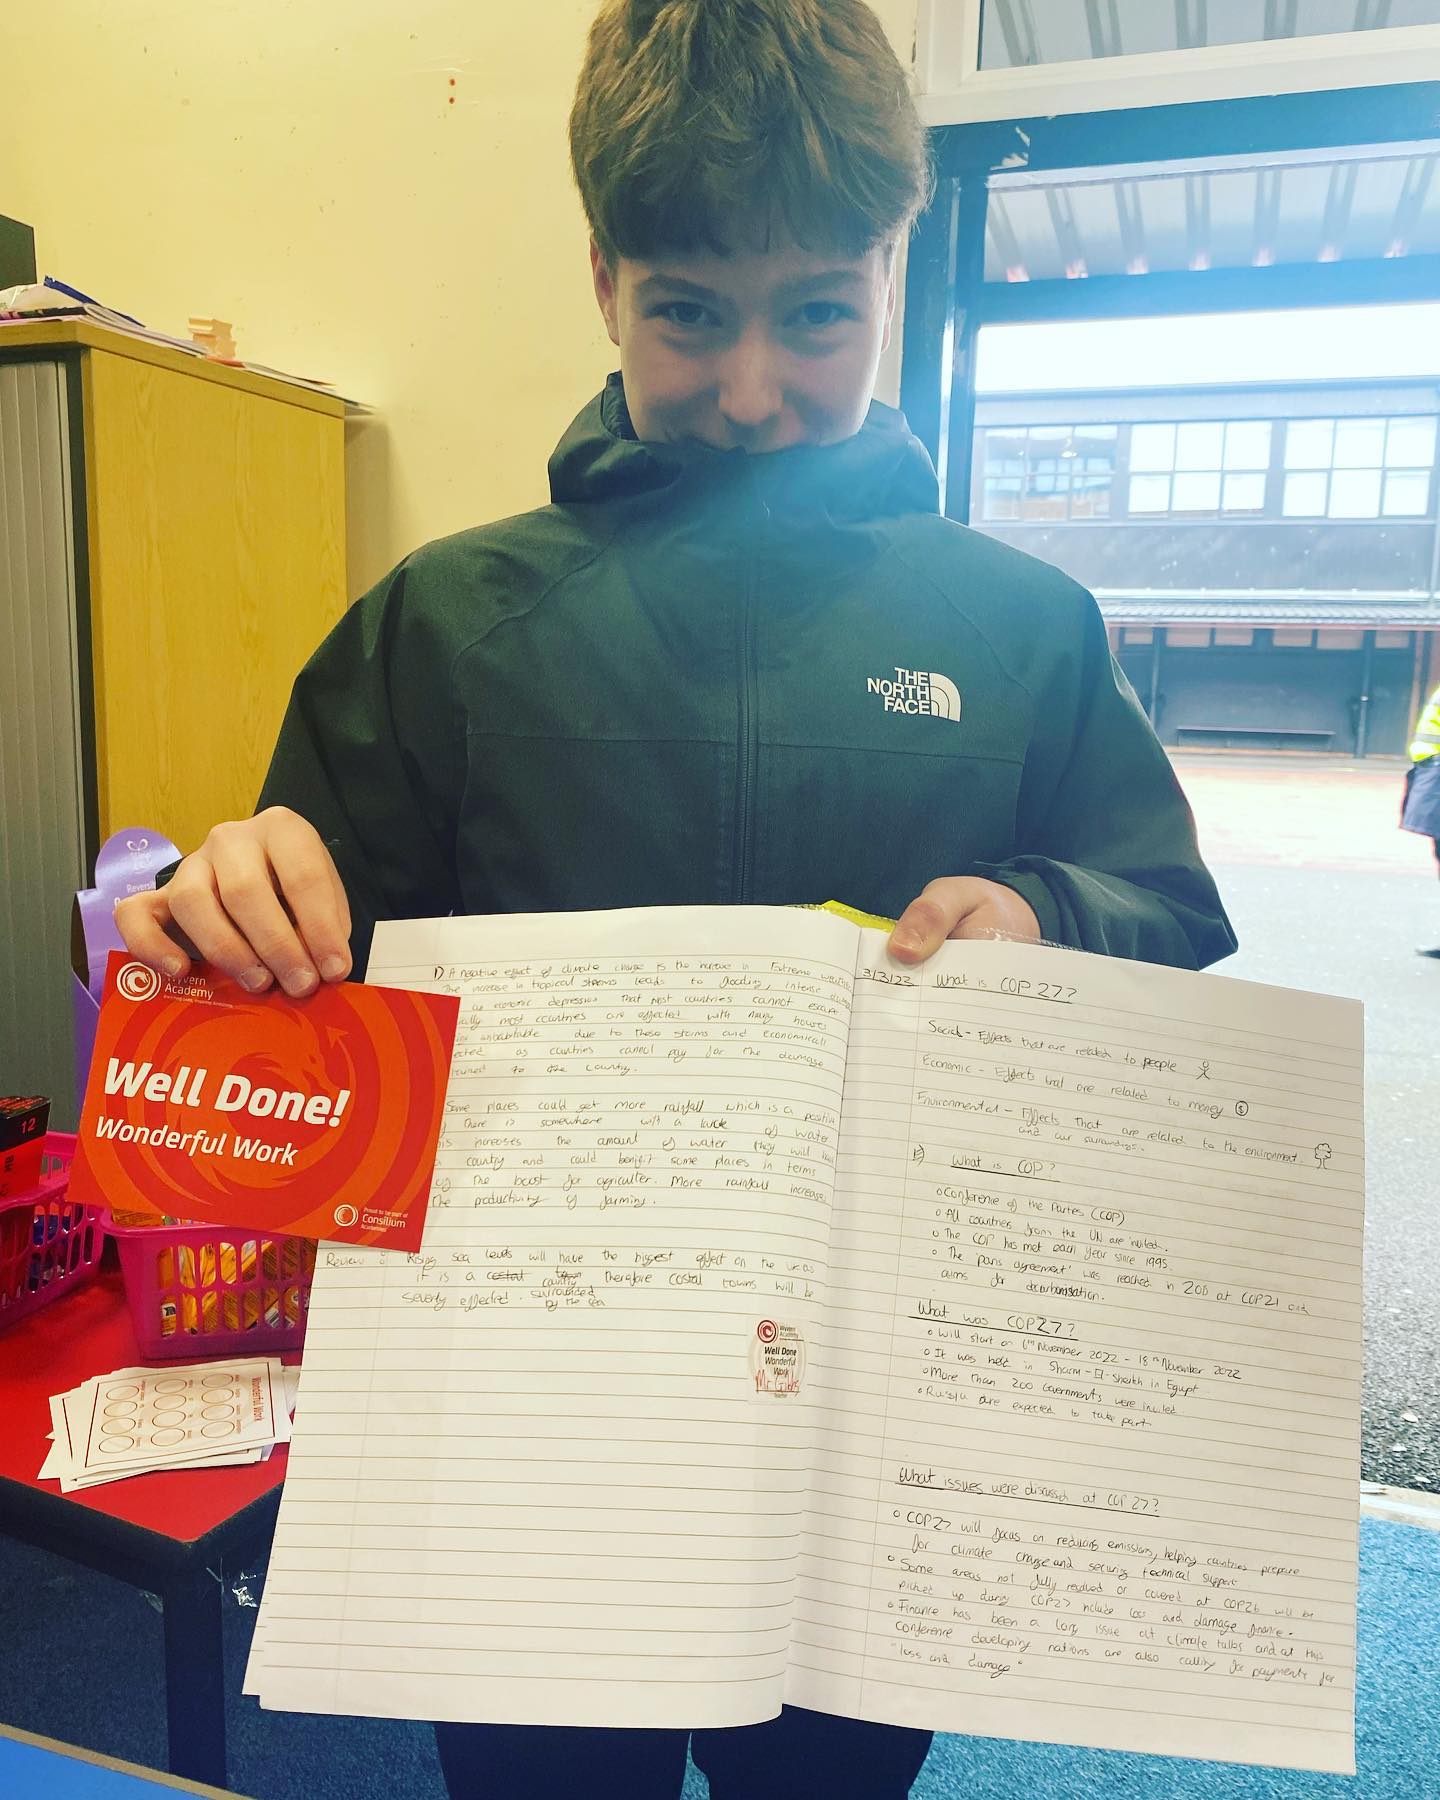 THE
NORTH
FACE
Wyvern
Academy
Well Done!
Wonderful Work
Proud to be part of
Consilium
Academies
Reversi
12
Wonderful Work
1) A negative effect of climate change is the increase in Extreme weather
The increase in tropical storms leads to flooding, intense
economic depression that most countries cannot escape
most countries are affected with many houses
due to these storms and economicall
as countries cannot pay for the damage
to the country.
Some places could get more rainfall which is a positive
if there is somewhere with a lack of water
increases the amount of water they will have
a country and could benifit some places in terms
of the boost for agriculter. More rainfall increases
the productivity of farming.
Review : Rising sea levels will have the biggest effect on the UK as
it is a costal town country therefore costal towns will be
surrounded
severly effected. by the sea
Wyvern
Academy
Well Done
Wonderful
Work
Mr Gibbs
Teacher
3/3/23 What is COP 27?
Social - Effects that are related to people
Economic - Effects that are related to money $
Environmental - Effects that are related to the environment
and our surroundings.
What is COP?
Conference of the Parties (COP)
All countries from the UN are invited.
The COP has met each year since 1995.
The 'paris agreement' was reached in 2015 at COP21 and
aims for decarbonisation.
What was COP27?
Will start on 6th November 2022 - 18th November 2022
It was held in Sharm-El-sheikh in Egypt
More than 200 Governments were invited
Russia are expected to take part
What issues were discussed at COP27?
COP27 will focus on reducing emissions, helping countries prepare
for climate change and securing technical support
Some areas not fully resolved or covered at COP26 will be
picked up during COP27 include loss and damage finance.
Finance has been a long issue at climate talks and at this
conference developing nations are also calling for payments for
"loss and damage"